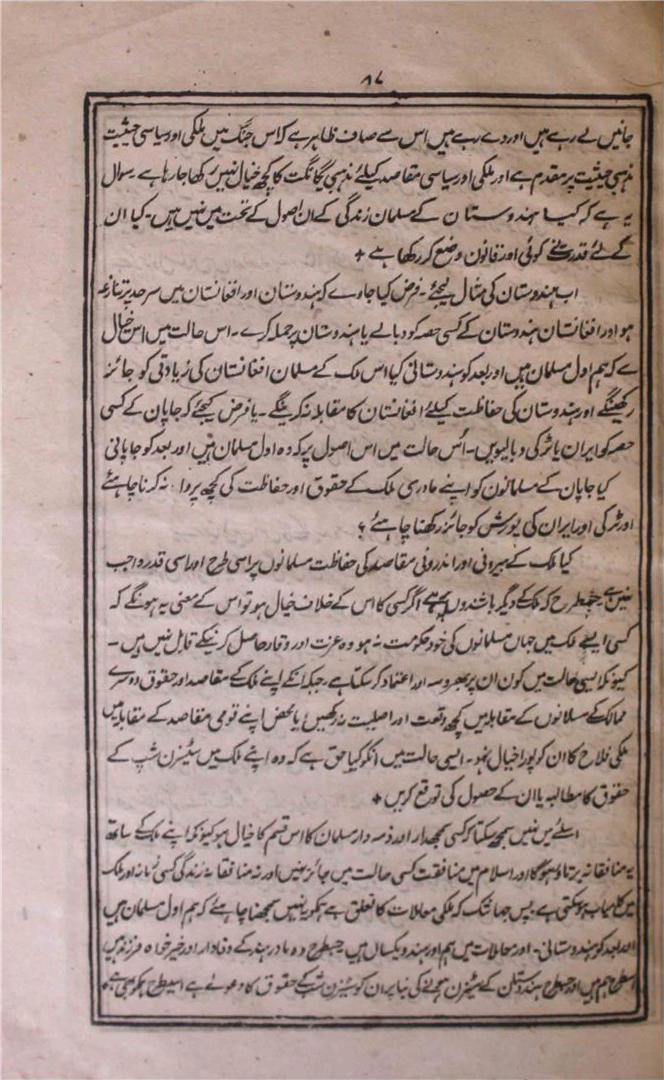 ۸۷
جانیں لے رہے ہیں اور دے رہے ہیں اس سے صاف ظاہر ہے کہ اس جنگ میں ملکی اور سیاسی حیثیت
مذہبی حیثیت پر مقدم ہے اور ملکی اور سیاسی مقاصد کیلئے مذہبی یگانگت کا کچھ خیال نہیں رکھا جا رہا ہے سوال
یہ ہے کہ کیا ہندوستان کے مسلمان زندگی کے ان اصول کے تحت میں نہیں ہیں۔ کیا ان
کے لئے قدرت نے کوئی اور قانون وضع کر رکھا ہے +
اب ہندوستان کی مثال لیجئے۔ فرض کیا جاوے کہ ہندوستان اور افغانستان میں سرحد پر تنازعہ
ہو اور افغانستان ہندوستان کے کسی حصہ کو دبالے یا ہندوستان پر حملہ کرے۔ اس حالت میں اس خیال
سے کہ ہم اول مسلمان ہیں اور بعد کو ہندوستانی کیا اس ملک کے مسلمان افغانستان کی زیادتی کو جائز
رکھینگے اور ہندوستان کی حفاظت کیلئے افغانستان کا مقابلہ نہ کرینگے۔ یا فرض کیجئے کہ جاپان کے کسی
حصہ کو ایران یا ٹرکی دبا لیویں۔ اُس حالت میں اس اصول پر کہ وہ اول مسلمان ہیں اور بعد کو جاپانی
کیا جاپان کے مسلمانوں کو اپنے مادری ملک کے حقوق اور حفاظت کی کچھ پروا نہ کرنا چاہئے
اور ٹرکی اور ایران کی یورش کو جائز رکھنا چاہئے ؟
کیا ملک کے بیرونی اور اندرونی مقاصد کی حفاظت مسلمانوں پر اسی طرح اور اسی قدر واجب
نہیں ہے جسطرح کہ ملک کے دیگر باشندوں پر ہے اگر کسی کا اس کے خلاف خیال ہو تو اس کے معنی یہ ہونگے کہ
کسی ایسے ملک میں جہاں مسلمانوں کی خود حکومت نہ ہو وہ عزت اور وقار حاصل کرنیکے قابل نہیں ہیں۔
کیونکہ ایسی حالت میں کون ان پر بھروسہ اور اعتماد کر سکتا ہے جبکہ انکے اپنے ملک کے مقاصد اور حقوق دوسرے
ممالک کے مسلمانوں کے مقابلہ میں کچھ وقعت اور اصلیت نہ رکھیں یا محض اپنے قومی مقاصد کے مقابلہ میں
ملکی فلاح کا ان کو پورا خیال نہو۔ ایسی حالت میں انکو کیا حق ہے کہ وہ اپنے ملک میں سٹیزن شپ کے
حقوق کا مطالبہ یا ان کے حصول کی توقع کریں +
اسلئے میں نہیں سمجھ سکتا کہ کسی سمجھدار اور ذمہ دار مسلمان کا اس قسم کا خیال ہو کیونکہ اپنے ملک کے ساتھ
یہ منافقانہ برتاؤ ہوگا اور اسلام میں منافقت کسی حالت میں جائز نہیں اور نہ منافقانہ زندگی کسی زمانہ اور ملک
میں کامیاب ہو سکتی ہے۔ پس جہانتک کہ ملکی معاملات کا تعلق ہے ہمکو یہ نہیں سمجھنا چاہئے کہ ہم اول مسلمان ہیں
اور بعد کو ہندوستانی۔ اور معاملات میں ہم اور ہندو یکساں ہیں جسطرح وہ مادر ہند کے وفادار اور خیر خواہ فرزند ہیں
اسطرح ہم ہیں اور جسطرح ہندوستان کے سٹیزن ہونے کی بنا پر ان کو سٹیزن شپ کے حقوق کا دعوےٰ ہے اسیطرح ہمکو بھی ہے۔